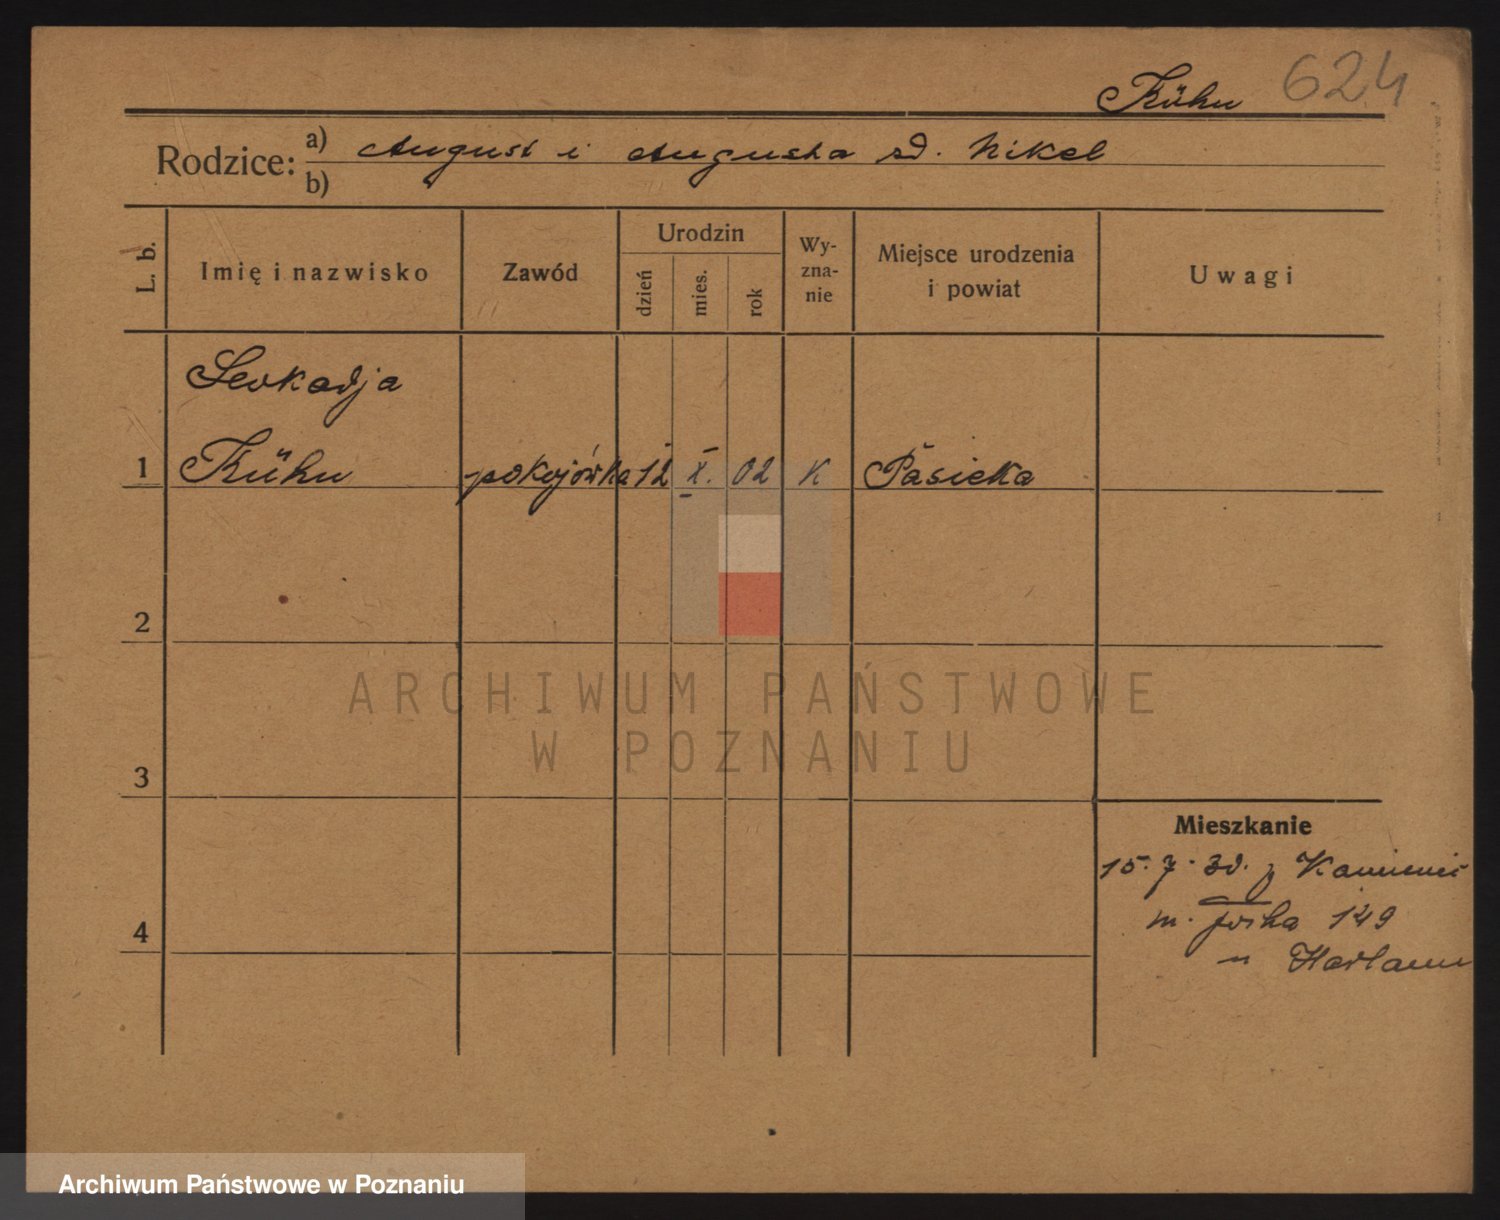 Kühn 624
Rodzice: a) August i Augusta zd. Nikel
b)
L. b.
Imię i nazwisko
Zawód
Urodzin
dzień
mies.
rok
Wy-
zna-
nie
Miejsce urodzenia
i powiat
Uwagi
Leokadja
1 Kühn pokojówka 12 X. 02 K Pasieka
2
3
4
Mieszkanie
15. 7. 30. z
m. 149
ARCHIWUM PAŃSTWOWE
W POZNANIU
Archiwum Państwowe w Poznaniu